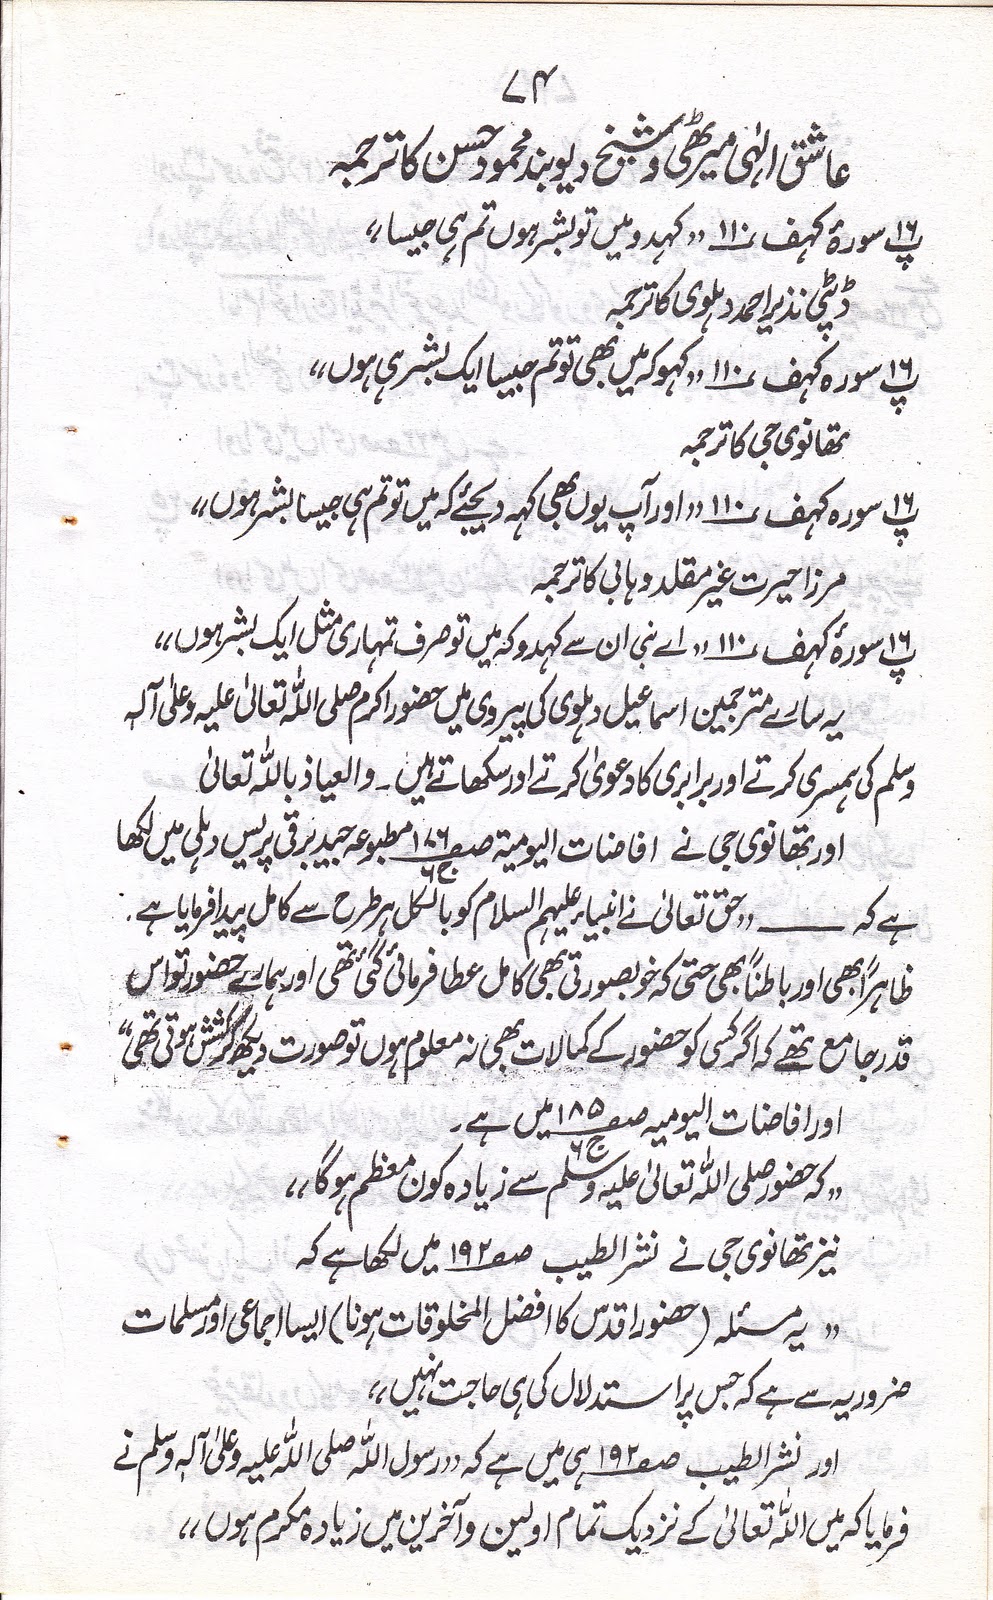 ۷۴
عاشق الٰہی میرٹھی و شیخ دیوبند محمود حسن کا ترجمہ
پ۱۶ سورۂ کہف ۱۱۰ ,, کہدو میں تو بشر ہوں تم ہی جیسا ,,
ڈپٹی نذیر احمد دہلوی کا ترجمہ
پ۱۶ سورہ کہف ۱۱۰ ,, کہو کہ میں بھی تو تم جیسا ایک بشر ہی ہوں ,,
تھانوی جی کا ترجمہ
پ۱۶ سورہ کہف ۱۱۰ ,, اور آپ یوں بھی کہہ دیجئے کہ میں تو تم ہی جیسا بشر ہوں ,,
مرزا حیرت غیر مقلد وہابی کا ترجمہ
پ۱۶ سورۂ کہف ۱۱۰ ,, اے نبی ان سے کہدو کہ میں تو صرف تمہاری مثل ایک بشر ہوں ,,
یہ سارے مترجمین اسماعیل دہلوی کی پیروی میں حضور اکرم صلی اللہ تعالیٰ علیہ وعلیٰ آلہٖ
وسلم کی ہمسری کرتے اور برابری کا دعویٰ کرتے اور سکھاتے ہیں ۔ والعیاذ باللہ تعالیٰ
اور تھانوی جی نے افاضات الیومیۃ صفـ۱۸۶ ج۶ مطبوعہ جید برقی پریس دہلی میں لکھا
ہے کہ ـــــ ,, حق تعالیٰ نے انبیاء علیہم السلام کو بالکل ہر طرح سے کامل پیدا فرمایا ہے ۔
ظاہراً بھی اور باطناً بھی حتی کہ خوبصورتی بھی کامل عطا فرمائی گئی تھی اور ہمارے حضور تو اس
قدر جامع تھے کہ اگر کسی کو حضور کے کمالات بھی نہ معلوم ہوں تو صورت دیکھ کر کشش ہوتی تھی ‟
اور افاضات الیومیہ صفـ۱۸۵ ج۶ میں ہے ۔
,, کہ حضور صلی اللہ تعالیٰ علیہ وسلم سے زیادہ کون معظم ہوگا ,,
نیز تھانوی جی نے نشر الطیب صفـ۱۹۲ میں لکھا ہے کہ
,, یہ مسئلہ (حضور اقدس کا افضل المخلوقات ہونا) ایسا اجماعی اور مسلمات
ضروریہ سے ہے کہ جس پر استدلال کی ہی حاجت نہیں ,,
اور نشر الطیب صفـ۱۹۲ ہی میں ہے کہ ,, رسول اللہ صلی اللہ علیہ وعلیٰ آلہٖ وسلم نے
فرمایا کہ میں اللہ تعالیٰ کے نزدیک تمام اولین و آخرین میں زیادہ مکرم ہوں ,,